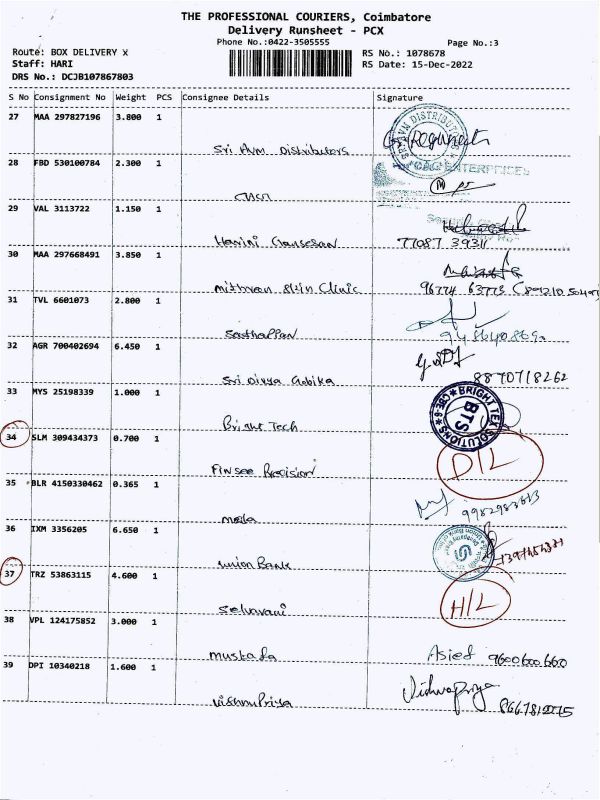 THE PROFESSIONAL COURIERS, Coimbatore
Delivery Runsheet - PCX
Phone No.:0422-3505555
Page No.:3
Route: BOX DELIVERY X
RS No.: 1078678
Staff: HARI
RS Date: 15-Dec-2022
DRS No.: DCJB107867803
S No Consignment No Weight PCS Consignee Details Signature
27 MAA 297827196 3.800 1
Sri Avm Distributors
28 FBD 530100784 2.300 1
29 VAL 3113722 1.150 1
Harini Ganesan 77087 39311
30 MAA 297668491 3.850 1
Mithran Skin Clinic 96774 63773
31 TVL 6601073 2.800 1
Sathappan
32 AGR 700402694 6.450 1
Sri Divya Gobika 8870718262
33 MYS 25198339 1.000 1
BRIGHT TEX SOLUTIONS CBE-6 BTS
Bright Tech
34 SLM 309434373 0.700 1
D/L
Finsee Precision
35 BLR 4150330462 0.365 1
9982983613
36 IXM 3356205 6.650 1
Union Bank
37 TRZ 53863115 4.600 1
H/L
Selvarani
38 VPL 124175852 3.000 1
Mustafa Asief 9600600660
39 DPI 10340218 1.600 1
Vishnu Priya Vishnupriya